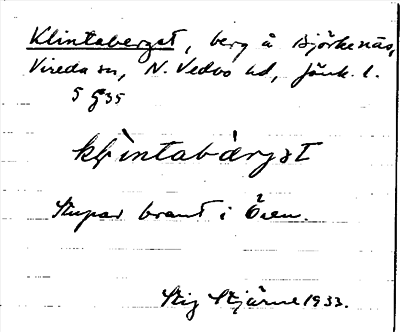 Klintaberget, berg å Björkenäs,
Vireda sn, N. Vedbo hd, Jönk. l.
5 G 35
klintabärgət
Stupar brant i Ören.
Stig Stjärne 1933.